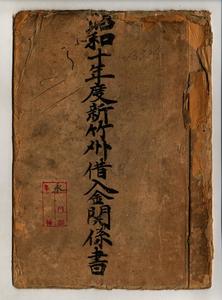 昭和十年度新竹州借入金関係書
永